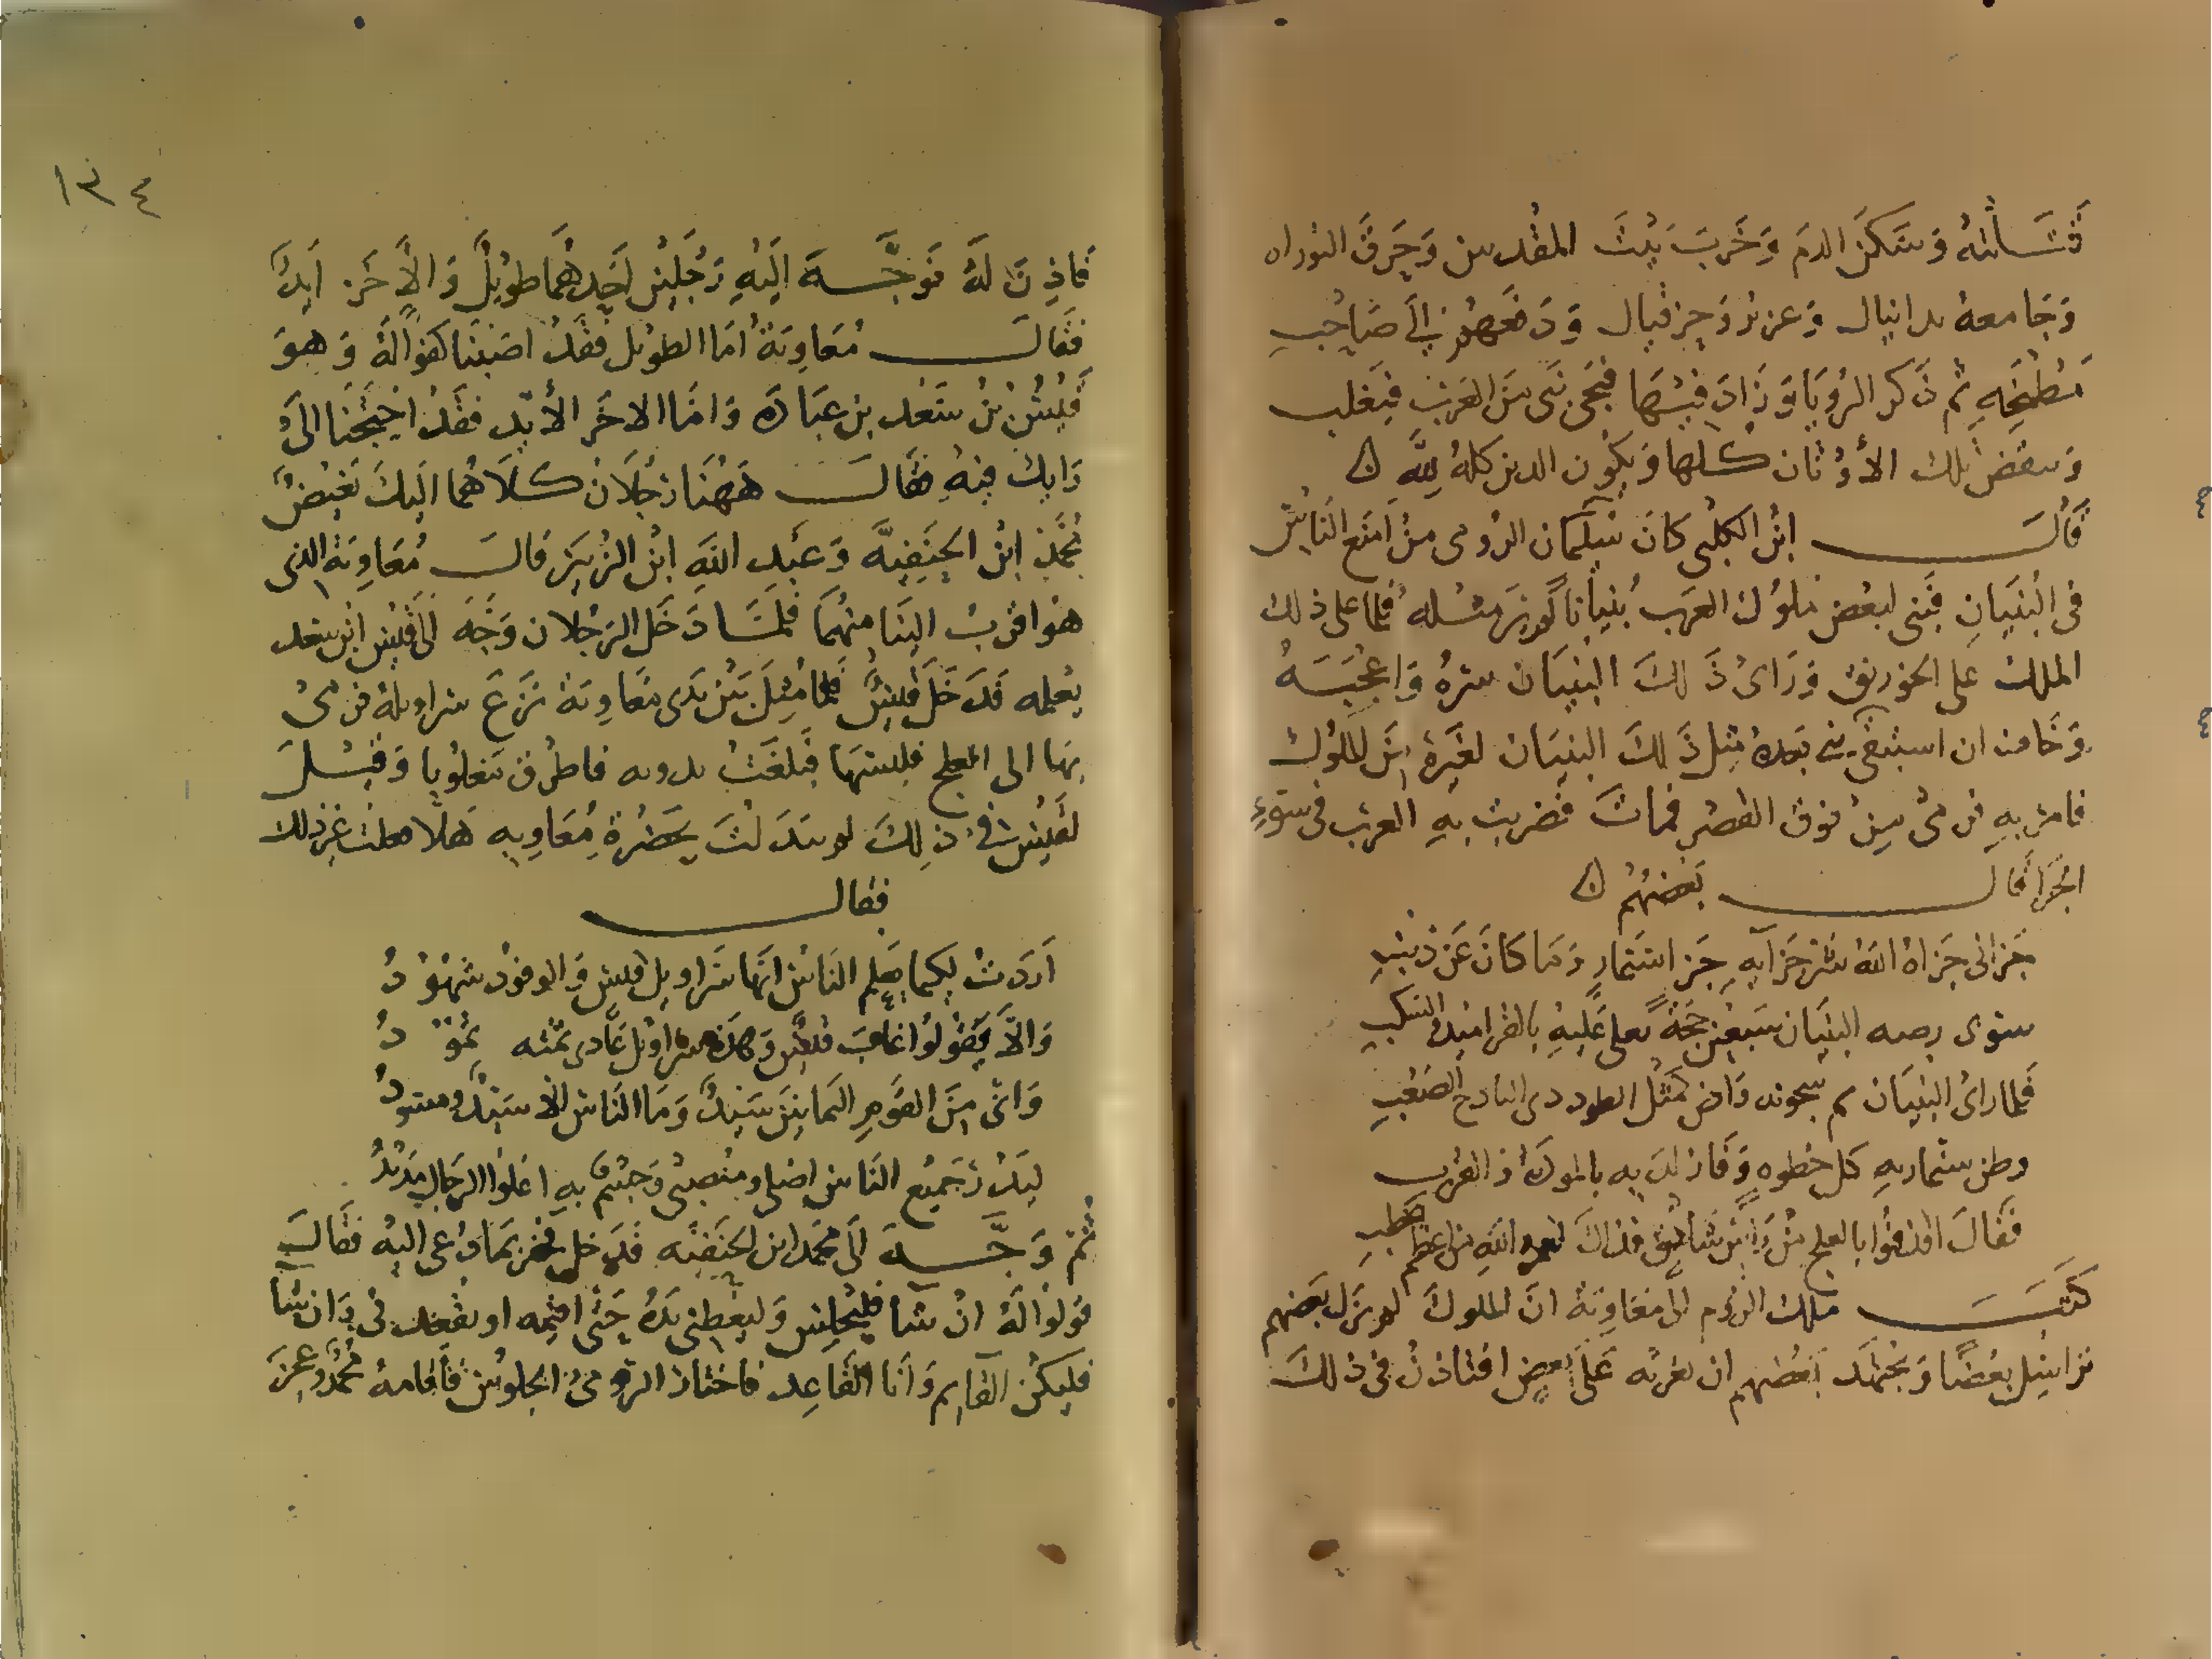 فَسَأَلتهُ وَسَكَنَ الدم وَخَربَ بَيْتَ المقْدس وَحَرقَ التوراه
وَجَا معهُ بدانيال وَعزير وَحزقيال وَدَفعهُم إلى صَاحِبِ
مَطبَخِهِ ثم ذكر الرُويَا وَزَادَ فيهَا فيجى نَبى مَن العَرَب فيَغلب
وَينقض تلك الأوْثان كلها وَيكُون الدين كلهُ لِلَّهِ
قَالَ ابنُ الكلْبى كانَ سِنِمَّان الرُومى منْ اصنَع النَاسْ
فى البُنيَانِ فَبَنى لبعْض مُلوْك العَرب بُنيَاناً لم يُرَ مثله فلما على ذلك
الملك على الخورنق وَرَاى ذَ لكَ البنيَان سرهُ وَاعْجَبَهُ
وَخَافَ ان استبقى بنى بَعدهُ مثل ذَ لكَ البنيَان لغَيرهْ مِنَ المُلوْك
فامرَ بهِ فرمى مِنْ فوق القصْرِ فماتَ فضربت بهِ العرَب فى سَوْءِ
الجَزَا قَالَ بَعضهُم
جَزانى جَزَاهُ اللهُ شَر جَزَآيهِ جَزَا سنمارٍ وَمَا كانَ عَن ذنبِ
سوى رصه البنيَان سَبعين حجَةً يعلى عَليْهِ بالقرَاميد والسَكبِ
فَلما راى البُنيَان تم سحوقه وَاض كمثْل الطود ذى الباذخ الصَعْبِ
وظن سنمار بهِ كل حظوه وَفَازَ لديه بالمودةْ وَ القرْب
فَقَالَ اقذفُوا بالعلج مِنْ رَاسِ شَاهِق فذاكَ لعمرو اللَّهِ من اعظم الخطبِ
كَتَبَ مَلك الرُوم الى مَعَاوِيَة انَ الملوكَ لم يَزَل بَعضهم
يُراسِل بَعْضًا وَيَجْتهَد بَعْضهم ان يغربَ عَلَى بَعضٍ افتاذنُ فى ذلكَ
١٣٤
فَاذِنَ لَهُ فَوَجَّهَ الَيْهِ رَجُلَيْن احَدهُمَا طويْلٌ وَالآخَر ايدٌ
فقَالَ مُعَاوِيَةُ أمَا الطويْل فقَدْ اصَبْنَا كفوًا لَهُ وَهوَ
قَيْسُ بْنُ سَعْد بن عبَادَه وَامَا الاخَر الأيّد فقَدْ احتجنَا الى
رَايكَ فيهِ فقَالَ هَهُنَا رَجُلَان كلَاهُما اليكَ بَغيضٌ
مُحَمَّدْ ابْنُ الحَنَفِيَّه وَعَبْدِ اللَّهِ ابْنُ الزُبَيْر قالَ مُعَاوِيَةُ الذى
هوَ اقرَبُ الينَا منهُمَا فلمَّا دَخَل الرَجُلان وَجَّهَ الَى قَيْس ابْن سعد
يعْلمه فَدَخَلَ قَيْسٌ فلما مَثل بَيْنَ يَدَى مُعَاويَة نَزَعَ سراويلهُ فرَمى
بهَا الى العلج فلبسَهَا فَبَلغَتْ ثدوته فاطرَق مَغلوُبا وَقيْلَ
لقَيْسْ فى ذلِكَ لم تبَدَّلْتَ بحَضْرةِ مُعَاويه هَلا فعَلتَ غَيْر ذلكَ
فقالَ
اَرَدتُ لِكَيما يَعلم النَاسُ انَّهَا سَراويْل قَيْس وَالوفوْد شهُوْدُ
وَالَّا يَقُوْلُوا غَابَ قَيْسٌ وَهذهِ سَراويْل عَادى نَمَّته ثَمُوْدُ
وَانى مِنَ القَوم اليَمانيْنَ سَيدٌ وَمَا النَاسُ الَّا سَيّدٌ ومسوْدُ
لبَدْرَ جَميْع النَاس اصْلى ومنصبى وَجسْمٌ بهِ اعلوا الرجَال مَدِيْدُ
ثُمَّ وَجَّهَ الَى مُحَمَّد ابن الحَنَفِيَّه فدَخَل فخبر بمَا دُعى اليْهِ فقَالَ
قوْلوْا لَهُ انْ شَآ فليَجْلِس وَليعْطِنى يَدَهُ حَتَّى اقيْمه او يقْعِدنى وَان شآ
فليكن القَايم وَانَا القَاعِد فاختارَ الرّومى الجلوْس فَاقامهُ مُحَمَّدٌ وعجزَ